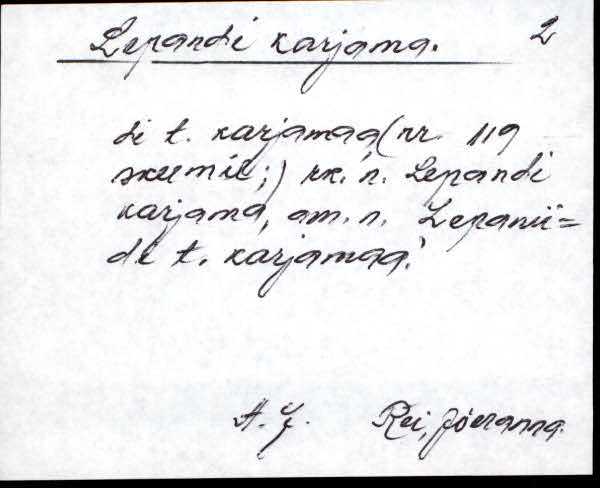 Lepandi karjama. 2
di t. karjamaa (nr. 119
skeemil;) rk. n. Lepandi
karjama, am. n. Lepanii=
di t. karjamaa.
A. J. Rei, Jõeranna.